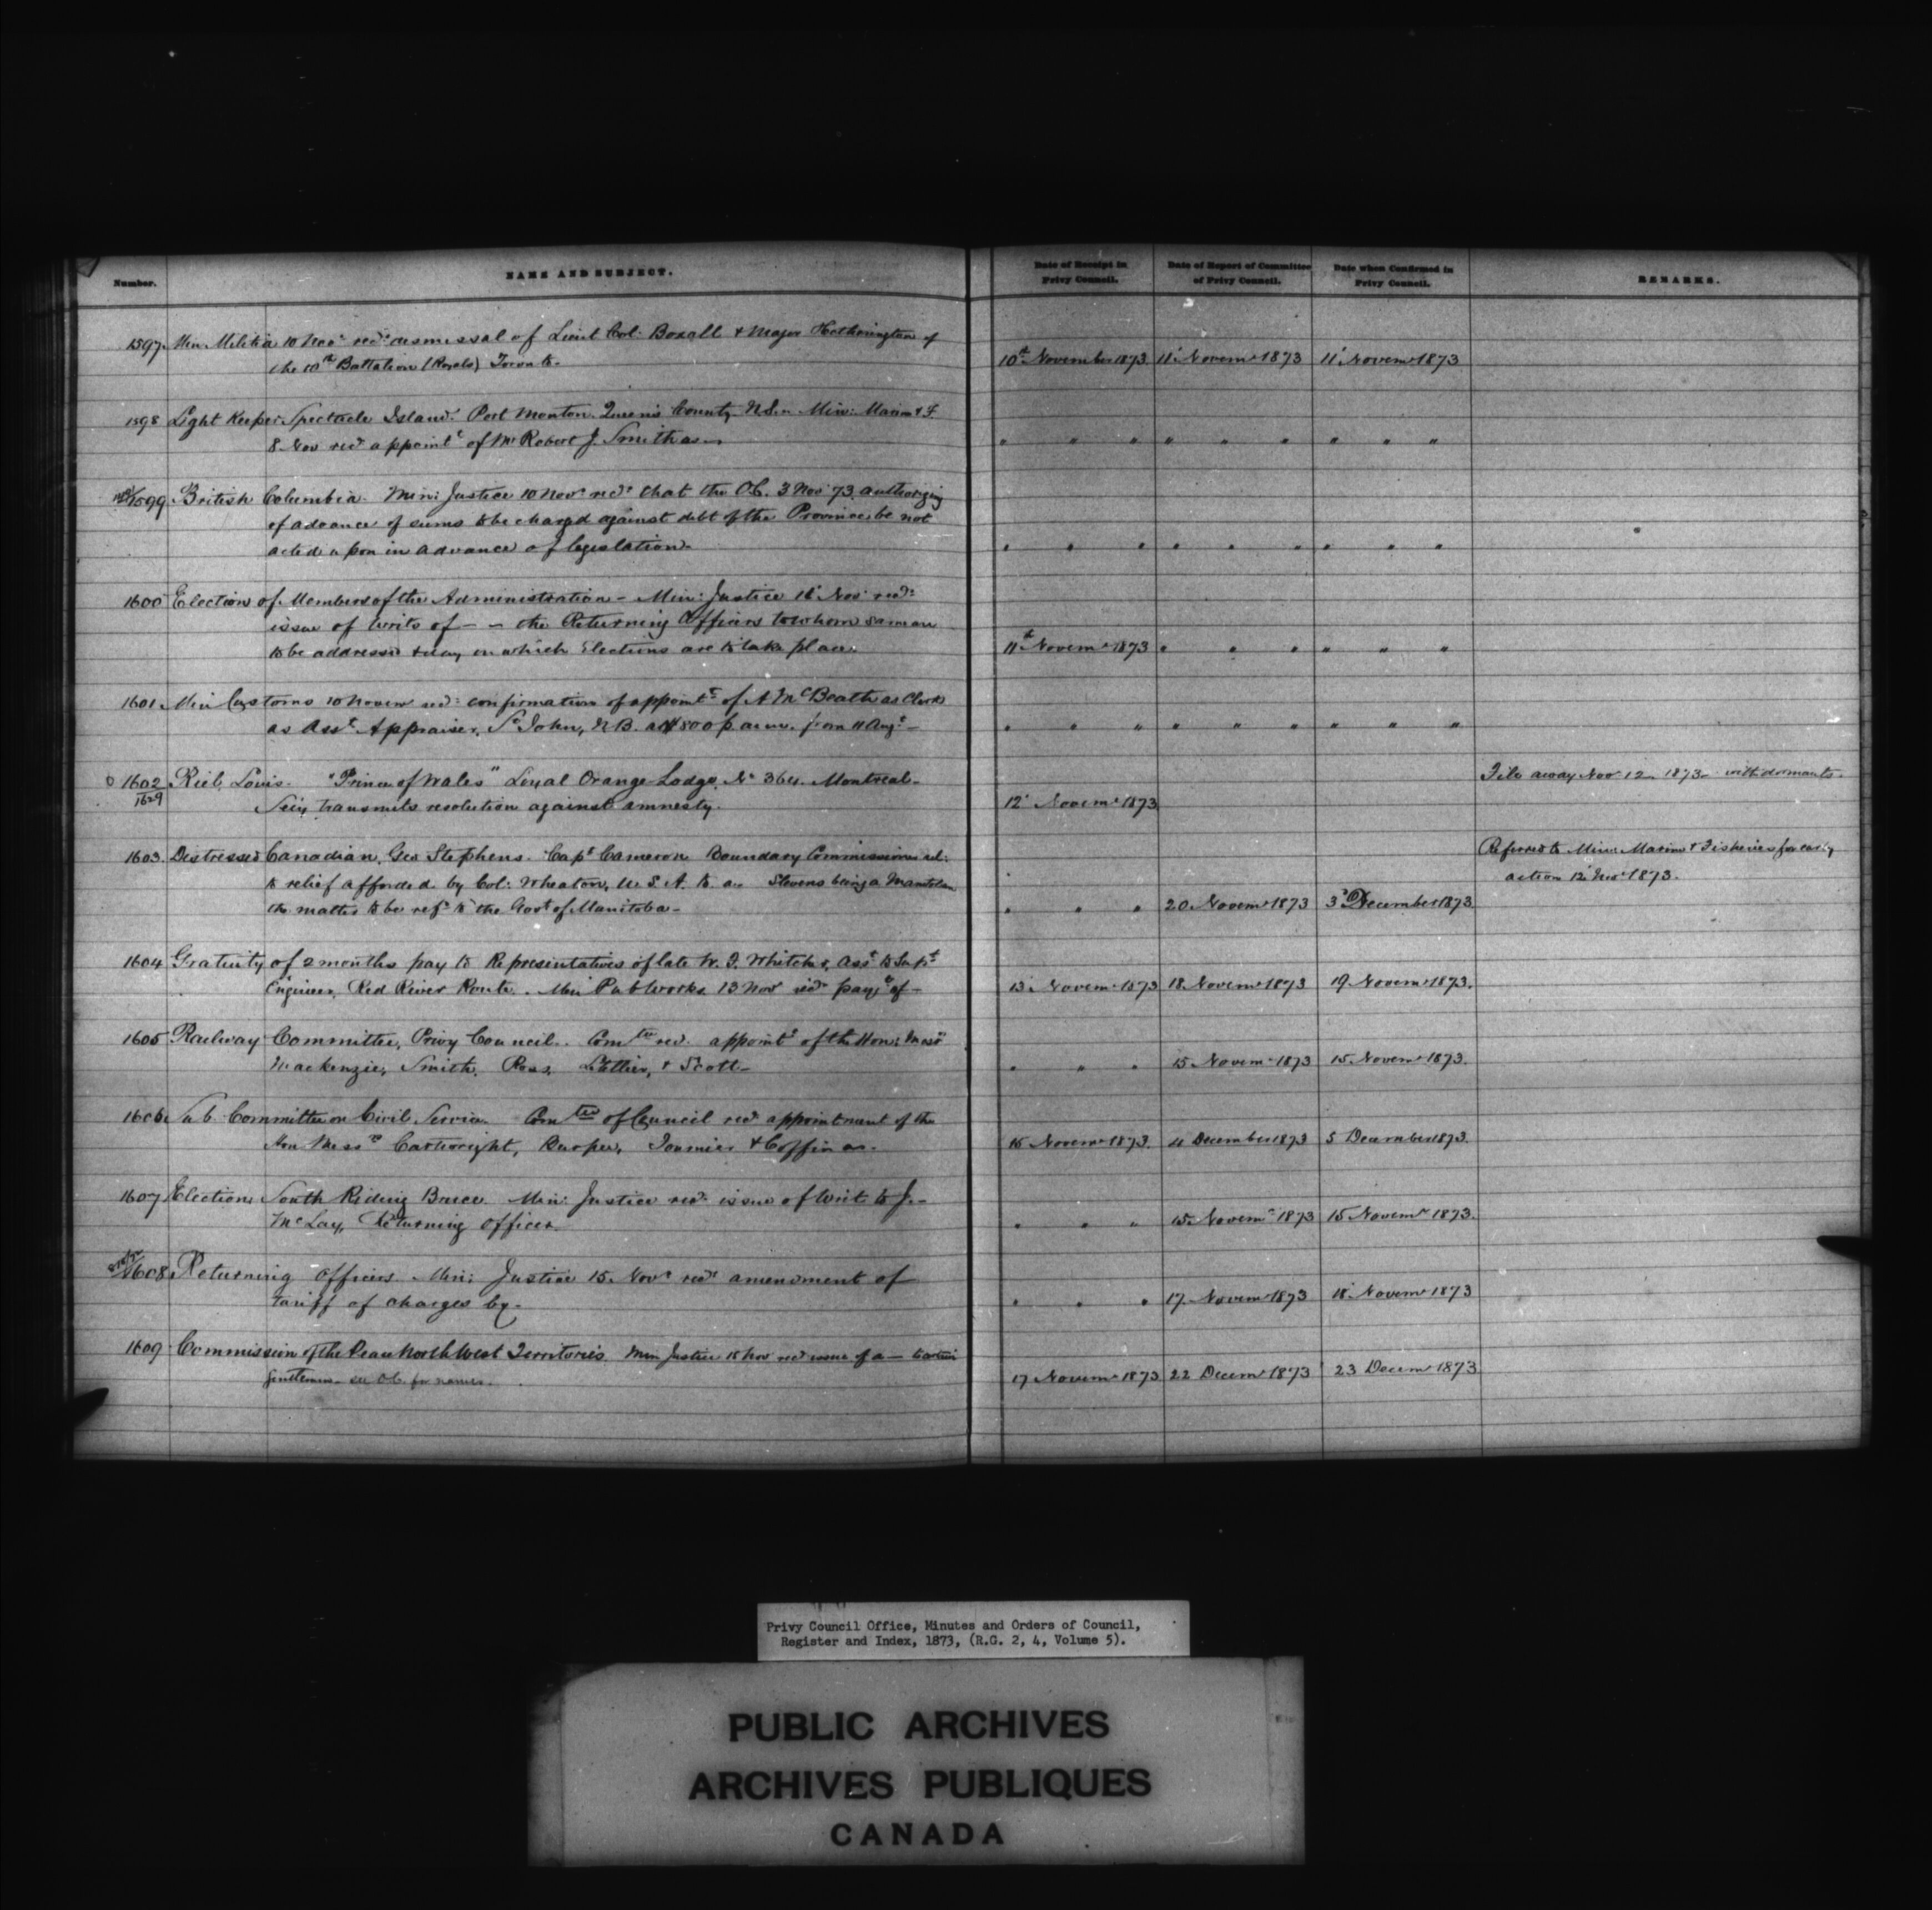 Number. NAME AND SUBJECT. Date of Receipt in Privy Council. Date of Report of Committee of Privy Council. Date when Confirmed in Privy Council. REMARKS.
1597 Min Militia 10 Nov. recd. dismissal of Lieut Col. Boxall & Major Hetherington of
the 10th Battalion (Royals) Toronto. 10th November 1873 11' Novemr 1873 11' Novemr 1873
1598 Light Keeper Spectacle Island. Port Mouton. Queen's County N.S. Min: Marine & F.
8 Nov recd appointt of Mr Robert J. Smith as — " " " " " " " " "
1599 British Columbia. Min: Justice 10 Novr recd that the O.C. 3 Nov 73 authorizing
of advance of sums to be charged against debt of the Province, be not
acted upon in advance of legislation. " " " " " " " " "
1600 Election of Members of the Administration - Min: Justice Nov recd:
issue of Writs of - - the Returning Officers to whom same are
to be addressed & day on which Elections are to take place. 11th Novemr 1873 " " " " " "
1601 Min Customs 10 Novemr recd: confirmation of appointt of A McBeath as Clerk
as Asst Appraiser, St John, N.B. at $800 p. ann. from 11 Augt - " " " " " " " " "
1602 Riel, Louis. "Prince of Wales" Loyal Orange Lodge, No 364. Montreal - File away Nov 12 1873 - with dormants.
1629 Secy transmits resolution against amnesty. 12' Novemr 1873
1603 Distressed Canadian, Geo Stephens. Capt Cameron Boundary Commissioner rel: Referred to Min: Marine & Fisheries for early
to relief afforded by Col: Wheaton, U.S.A. to a - Stevens being a action 12 Novr 1873.
the matter to be refd to the Govt of Manitoba - " " " 20 Novemr 1873 3d December 1873
1604 Gratuity of 2 months pay to Representatives of late Asst to Supt
Engineer, Red River Route. Min Pub Works 13 Nov recd payt of - 13 Novemr 1873 18 Novemr 1873 19 Novemr 1873.
1605 Railway Committee, Privy Council. Comtee recd. appointt of the Hon: Messrs
Mackenzie, Smith, Ross, Letellier, & Scott - " " " 15 Novemr 1873 15 Novemr 1873.
1606 Sub Committee on Civil Service. Comtee of Council recd appointment of the
Hon Messrs Cartwright, Burpee, Fournier & Coffin as - 15 Novemr 1873. 4 December 1873 5 December 1873.
1607 Election, South Riding Bruce. Min: Justice recd issue of Writ to J. -
McLay, Returning Officer. " " " 15 Novemr 1873 15 Novemr 1873.
1608 Returning Officers. Min: Justice 15 Novr recd amendment of
tariff of charges by - " " " 17 Novemr 1873 18 Novemr 1873
1609 Commission of the Peace North West Territories. Min Justice 15 Nov recd issue of a - to certain
gentlemen - see O.C. for names. 17 Novemr 1873 22 Decemr 1873 23 Decemr 1873
Privy Council Office, Minutes and Orders of Council,
Register and Index, 1873, (R.G. 2, 4, Volume 5).
PUBLIC ARCHIVES
ARCHIVES PUBLIQUES
CANADA